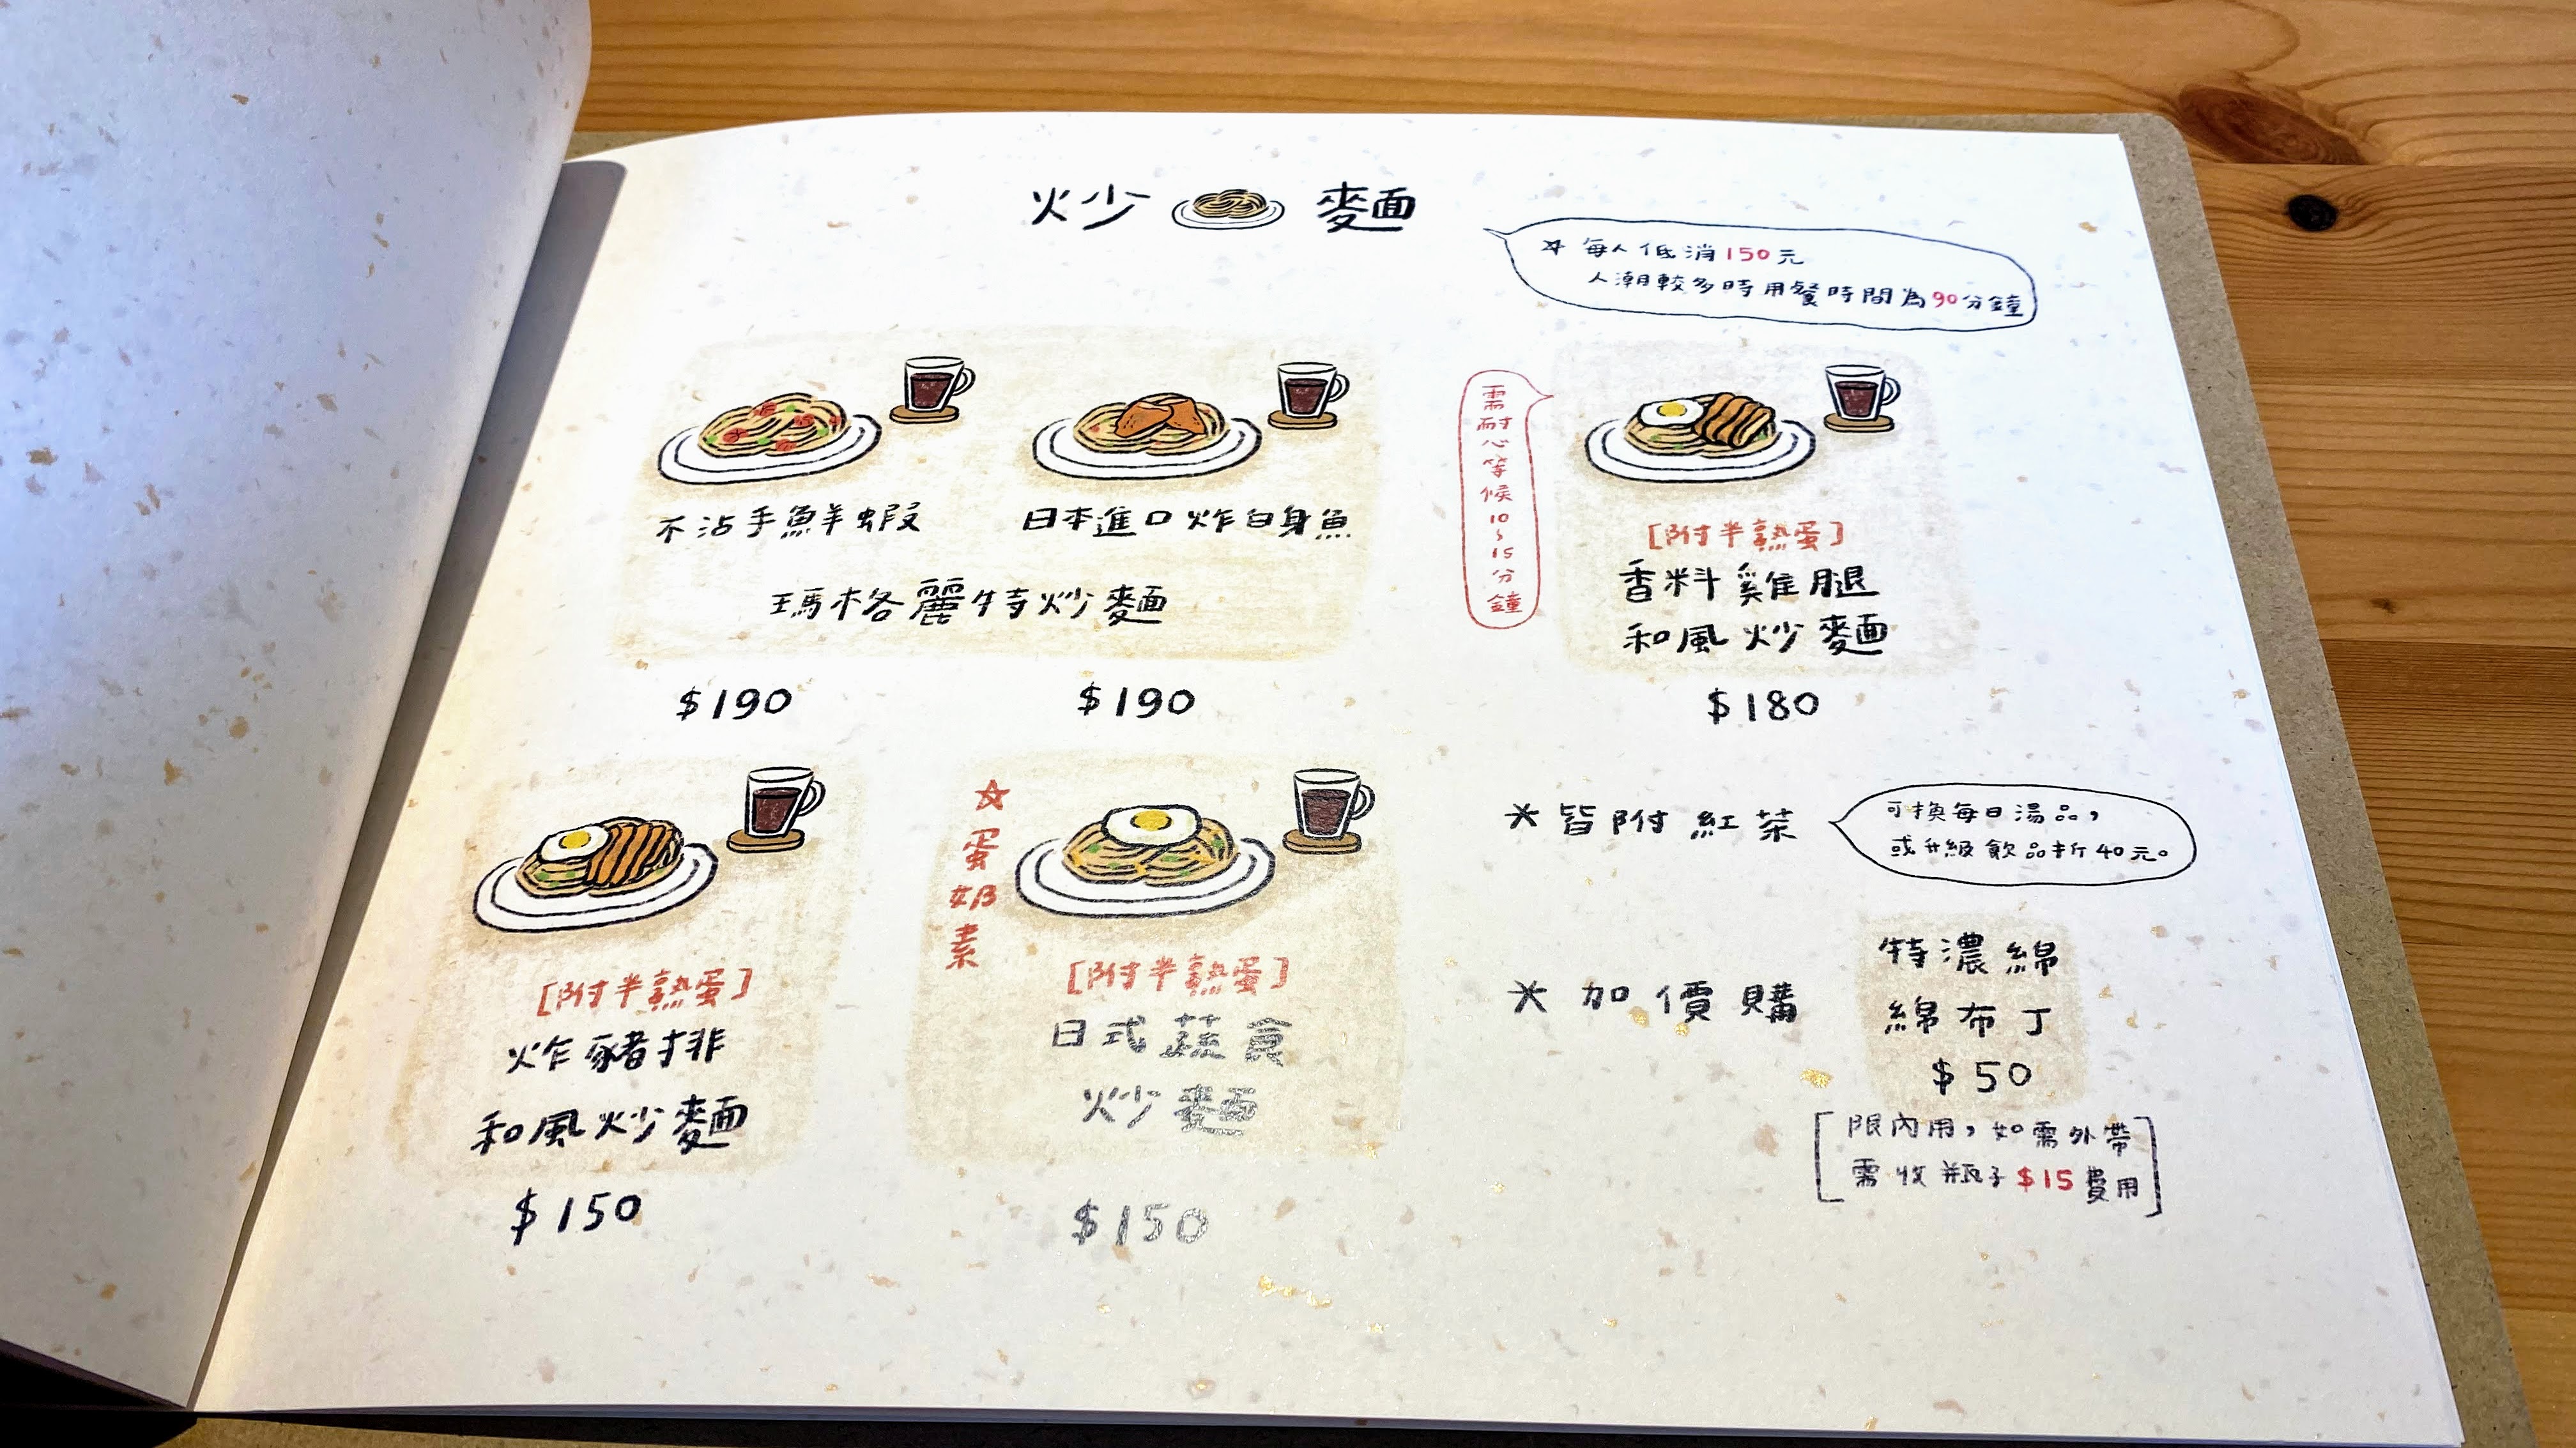 炒麵
☆ 每人低消150元
人潮較多時用餐時間為90分鐘
不沾手鮮蝦
日本進口炸白身魚
瑪格麗特炒麵
$190
$190
需耐心等候10~15分鐘
[附半熟蛋]
香料雞腿
和風炒麵
$180
[附半熟蛋]
炸豬排
和風炒麵
$150
☆蛋奶素
[附半熟蛋]
日式蔬食
炒麵
$150
* 皆附紅茶
可換每日湯品，
或升級飲品折40元。
* 加價購
特濃綿
綿布丁
$50
[限內用，如需外帶
需收瓶子$15費用]